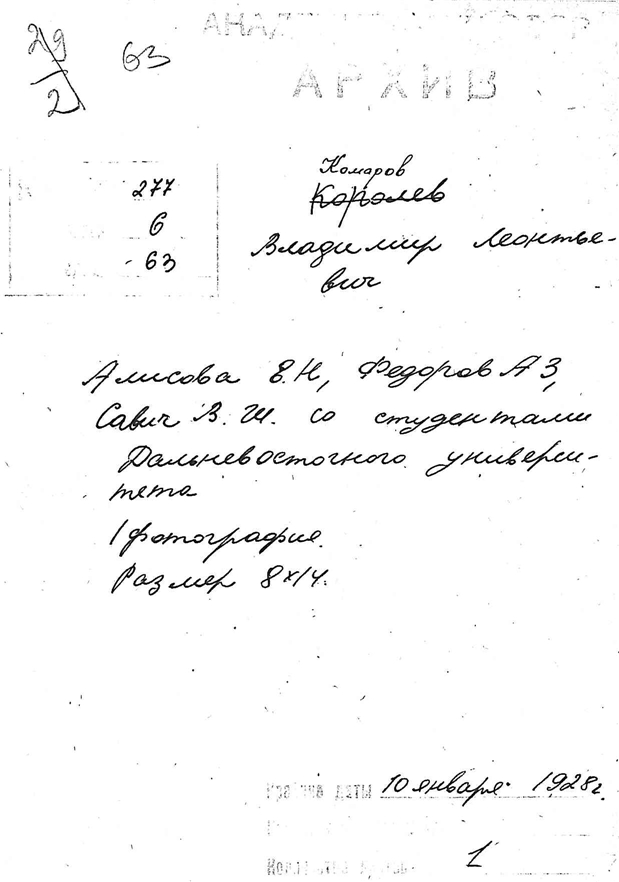 29
2
63
АРХИВ
277
6
63
Комаров
Королев
Владимир Леонтье-
вич
Алисова Е.Н, Федоров А З,
Савич В. М. со студентами
Дальневосточного универси-
тета
1 фотография.
Размер 8х14.
даты 10 января 1928г.
1